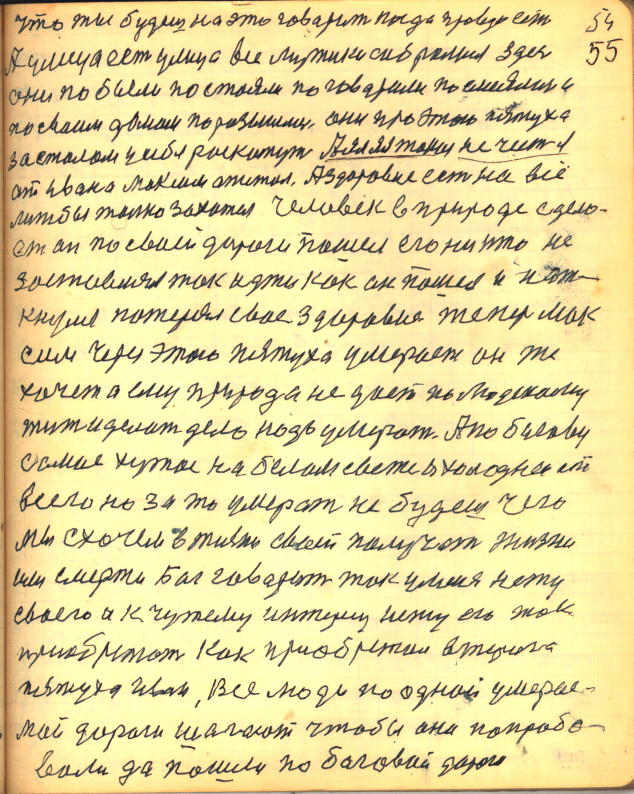 что ты будеш на это говорит когда правда ест 54
А улица ест улица все мужики собролися здес 55
они побыли постояли поговарили посмеялися и
по своим думам поразышлис. они про этого пятуха
за столом у себя
от Ивана Максим Аздоровие ест на всё
лишбы толко захотел человек в природе сдело-
ет он по своей дароги пошел его никто не
заставлял так идти как он пошел и нат-
кнулся потерял свое здоровие тепер Мак
сим через этого пятуха умерает он же
хочет а ему природа не дает по людскому
жит и делат дело надо умерат. А по багову
самае хужое на белом свете и холодная ест
всего но за то умерат не будеш чего
мы схочем в жизни своей получат жизни
или смерти Баг говарит так у меня нету
своего а к чужему интересу нету его так
приобретат как приобретал второга
пятуха Иван, Все люди по одной умерае-
мой дароги шагают чтобы они попробо-
вали да пошли по баговой дароги